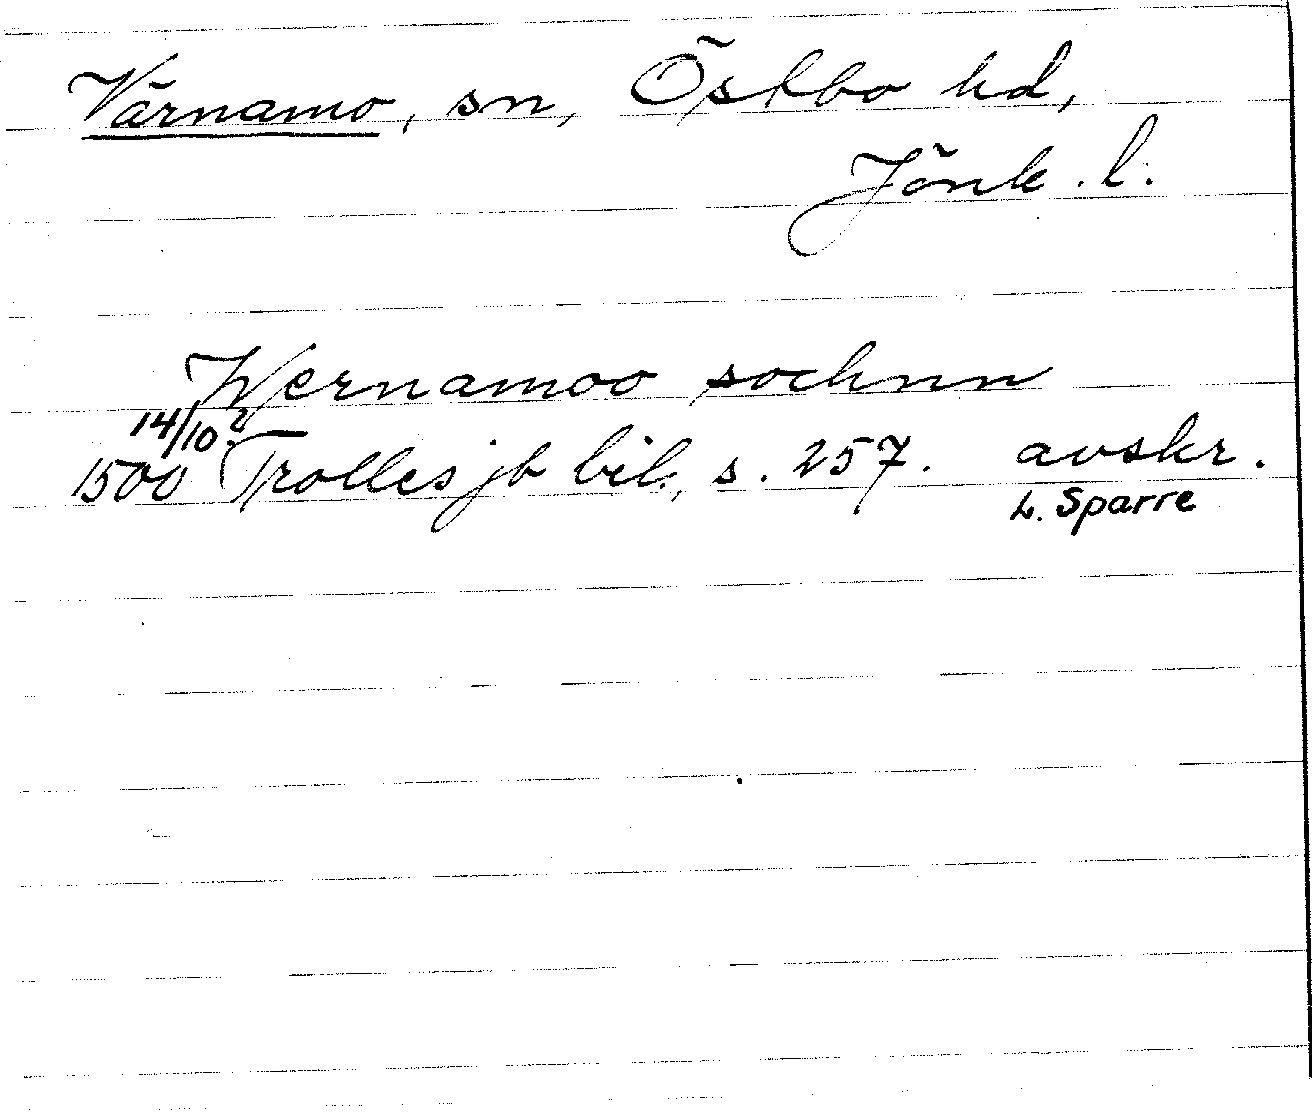 Värnamo, sn, Östbo hd,
Jönk. l.
Wernamoo sochnn
14/10?
1500 Trolles jb bil., s. 257. avskr.
L. Sparre